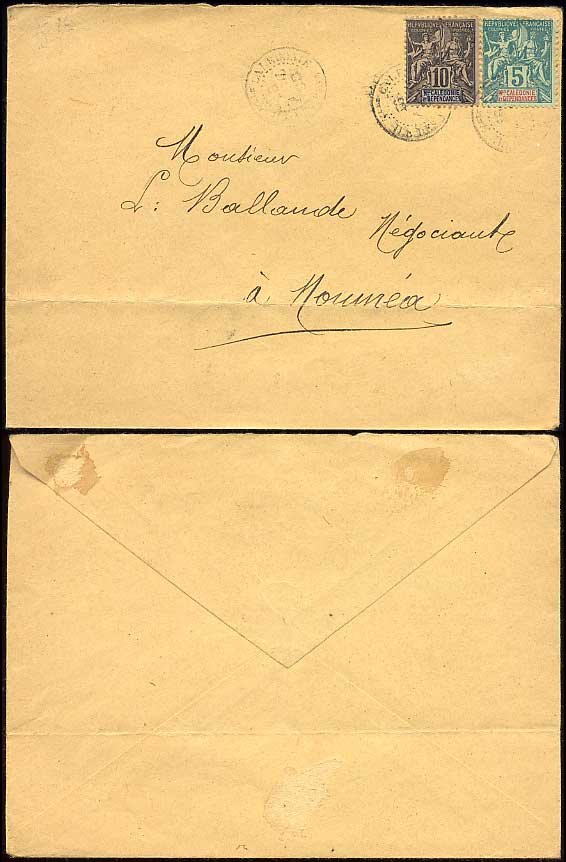 REPUBLIQUE FRANÇAISE
COLONIES POSTES
10
Nlle CALEDONIE
ET DEPENDANCES
REPUBLIQUE FRANÇAISE
COLONIES POSTES
5
Nlle CALEDONIE
ET DEPENDANCES
Monsieur
L: Ballande
Négociant
à Nouméa